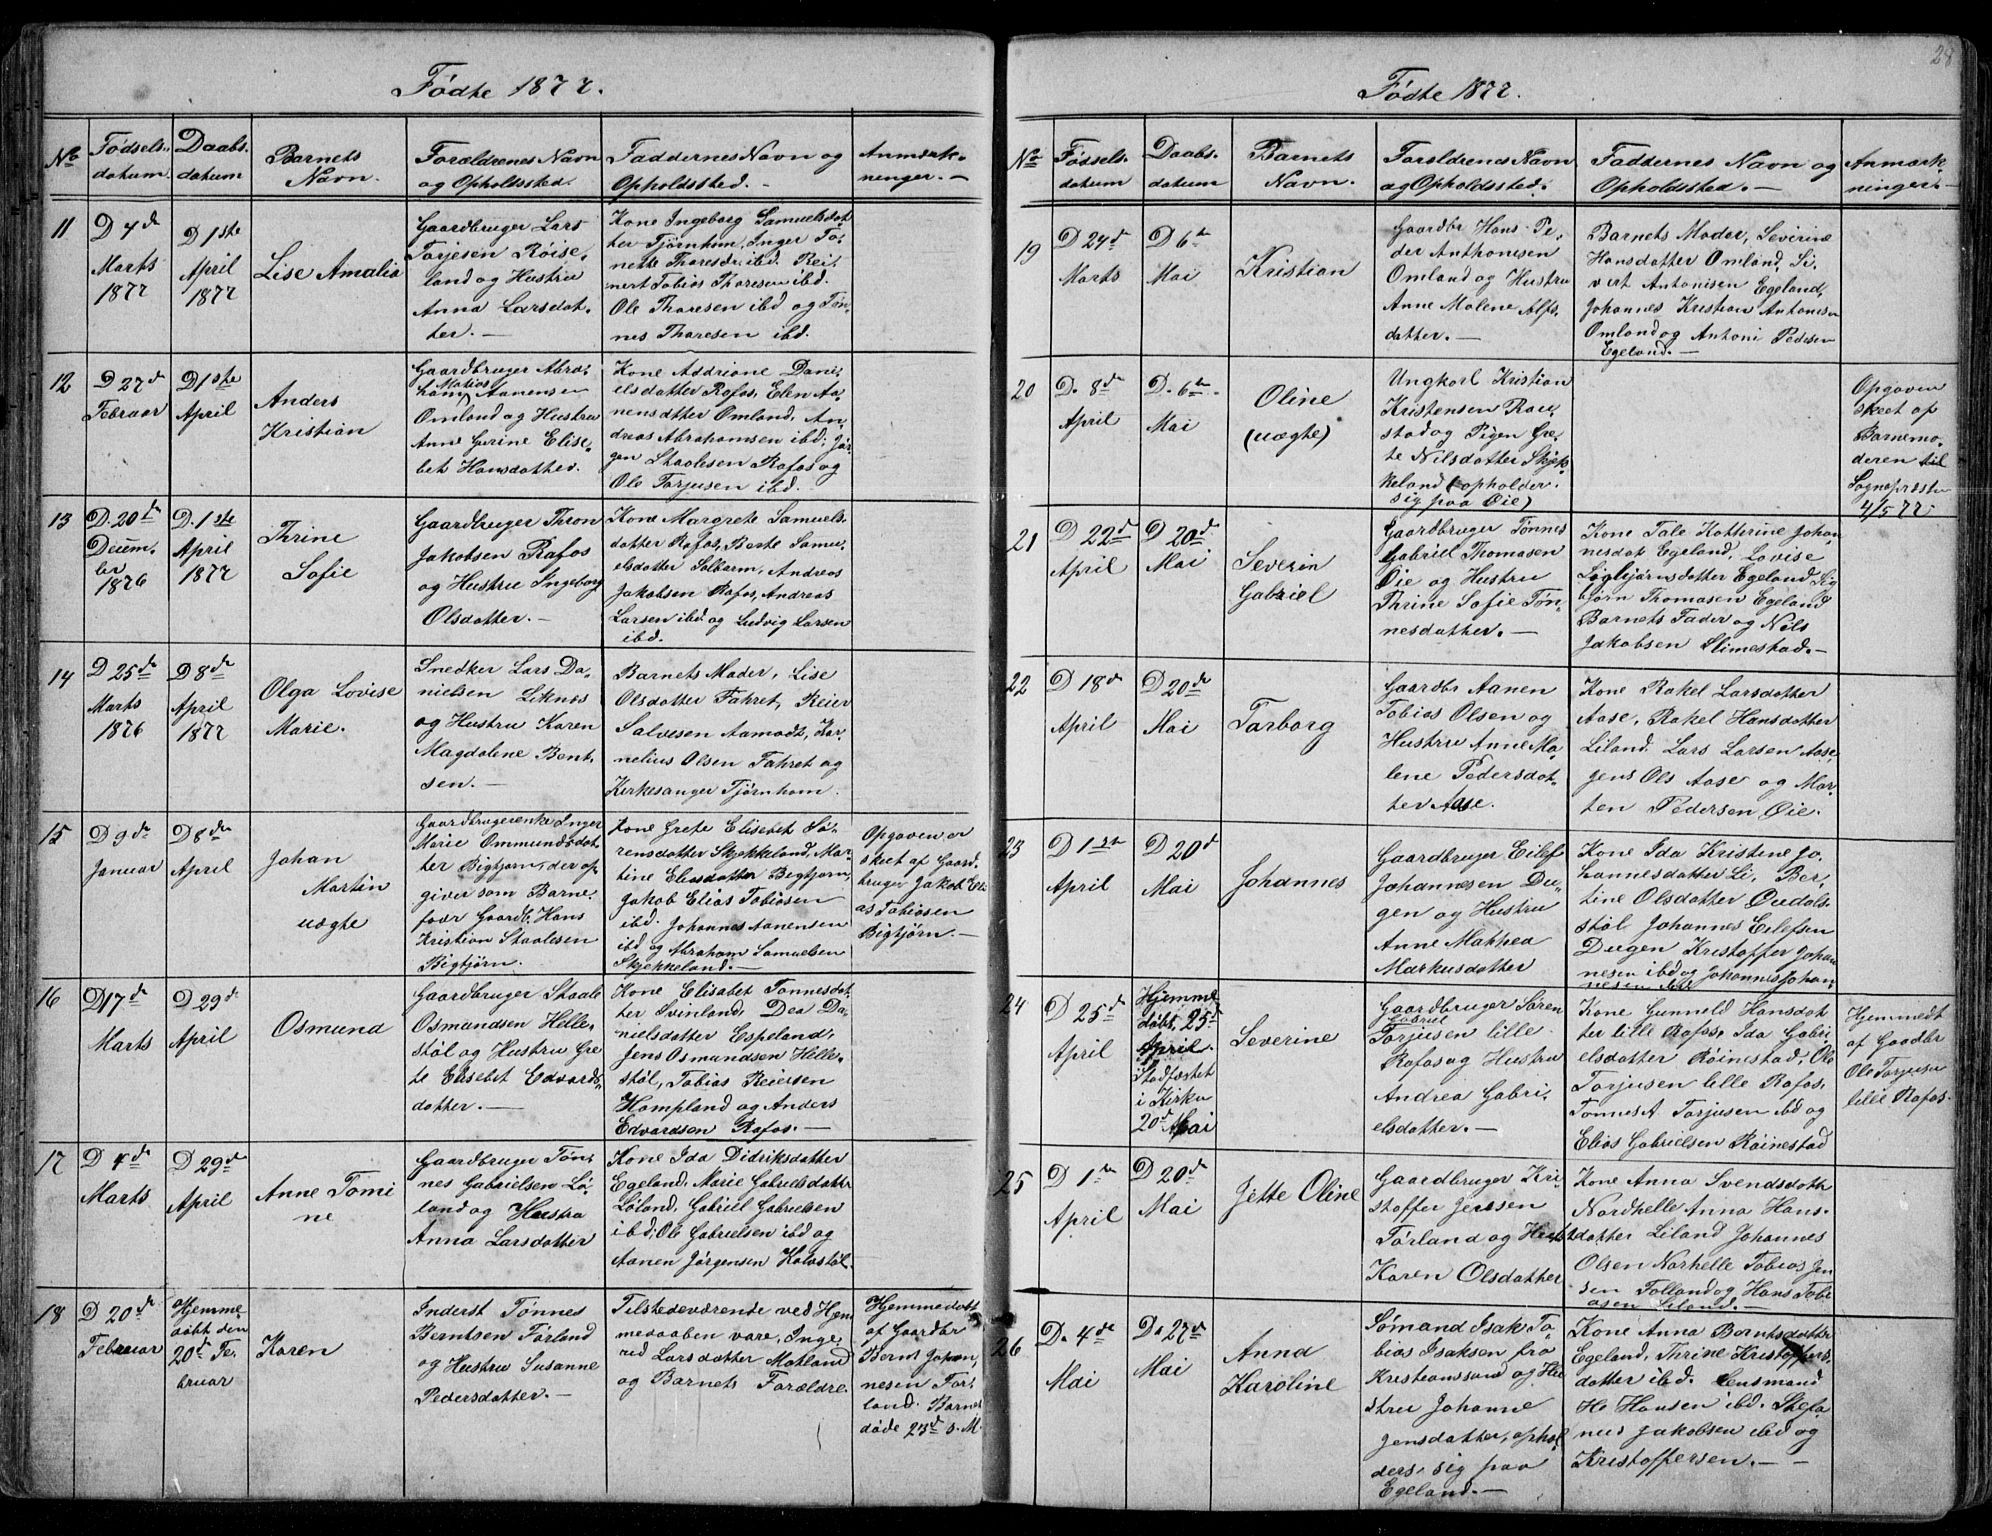 Fødte 1877.
No
Fødsels-
datum.
Daabs-
datum
Barnets
Navn.
Forældrenes Navn
og Opholdssted.
Faddernes Navn og
Opholdssted. -
Anmærk-
ninger. -
11
D 4de
Marts
1877
D 1ste
April
1877
Lise Amalia
Gaardbruger Lars
Torjesen Röise-
land og Hustru
Anna Larsdat-
ter. -
Kone Ingeborg Samuelsdat
ter Tjørnhum, Inger To-
nette Tharesdr. ibd. Rei-
nert Tobias Tharesen ibd.
Ole Tharesen ibd og Tøn-
nes Tharesen ibd.
12
D 27de
Februar
D 1ste
April
Anders
Kristian
Gaardbruger Abra-
ham Matios Aamensen
Omland og Hustru
Anne Gurine Elise-
bet Hansdatter.
Kone Addriane Dani-
elsdatter Rafos, Elen Aa-
nensdatter Omland, An-
dreas Abrahamsen ibd; Jør-
gen Staalesen Rafos og
Ole Torjusen ibd.
13
D. 20de
Decem-
ber
1876
D. 1ste
April
1877
Thrine
Sofie
Gaardbruger Thron
Jakobsen Rafos
og Hustru Ingeborg
Olsdatter. -
Kone Margrete Samuels-
datter Rafos, Berte Samu-
elsdatter Solberm, Andreas
Jakobsen Rafos, Andreas
Larsen ibd og Ludvig Larsen
ibd.
14
D 25de
Marts
1876
D 8de
April
1877
Olga Lovise
Marie.
Snedker Lars Da-
nielsen Liknes
og Hustru Karen
Magdalene Bent-
sen. -
Barnets Moder, Lise
Olsdatter Fahret, Reier
Salvesen Aamodt, Kor-
nelius Olsen Fahret og
Kirkesanger Tjørnhom.
15
D 9de
Januar
D 8de
April
Johan
Martin
uægte
Gaardbrugerenke Inger
Marie Ommundsdat-
ter Bigtjørn, der op-
giver som Barne-
faer Gaardb. Hans
Kristian Staalesen
Bigtjørn.
Kone Grete Elisebet Sö-
rensdatter Skjekkeland, Mar-
tine Eliasdatter Bigtjørn,
Jakob Elias Tobiasen
ibd. Johannes Aanensen
ibd og Abraham Samuelsen
Skjekkeland. -
Opgaven er
skeet af Gaard-
bruger Jakob Eli
as Tobiasen
Bigtjørn. -
16
D 17de
Marts
D 29de
April
Osmund
Gaardbruger Staale
Osmundsen Helle-
støl og Hustru Gre
te Elisebet Edvards-
datter. -
Kone Elisabet Tønnesdat-
ter Svinland, Dea Da-
nielsdatter Espeland,
Jens Osmundsen Helle-
støl, Tobias Reiersen
Hompland og Anders
Edvardsen Rafos. -
17
D 4de
Marts
D 29de
April
Anne Tomi
ne
Gaardbruger Tøn-
nes Gabrielsen Lö-
land og Hustru
Anna Larsdatter
Kone Ida Didriksdatter
Egeland, Marie Gabrielsdatter
Löland, Gabriel Gabrielsen
ibd; Ole Gabrielsen ibd og
Aanen Jørgensen Kalvstöl.
18
D 20de
Februar
Hjemme
döbt den
20de Fe-
bruar
Karen
Inderst Tønnes
Berntsen Førland
og Hustru Susanne
Pedersdatter. -
Tilstedeværende ved Hjem
medaaben vare, Inge
rid Larsdatter Motland
og Barnets Forældre.
Hjemmedøbt
af Gaardbr
Bernt Johan-
nesen Før-
land. Barnet
døde 23de s. M.
28
Fødte 1877.
No
Fødsels-
datum
Daabs-
datum
Barnets
Navn.
Forældrenes Navn
og Opholdssted.
Faddernes Navn og
Opholdssted. -
Anmærk
ninger. -
19
D 24de
Marts
D 6te
Mai
Kristian
Gaardbr Hans Pe-
der Anthonisen
Omland og Hustru
Anne Malene Alfs-
datter. -
Barnets Moder, Severine
Hansdatter Omland, Si-
vert Antonisen Egeland,
Johannes Kristian Antonisen
Omland og Antoni Pedersen
Egeland. -
20
D. 8de
April
D. 6te
Mai
Oline
(uægte)
Ungkarl Kristian
Kristensen Rau-
stad og Pigen Gre-
te Nilsdatter Skjek-
keland (opholder
sig paa Øie)
Opgaven
skeet af
Barnemo-
deren til
Sognepresten
4/5 77
21
D 22de
April
D 20de
Mai
Severin
Gabriel
Gaardbruger Tønnes
Gabriel Thomasen
Øie og Hustru
Thrine Sofie Tøn-
nesdatter. -
Kone Tale Kathrine Johan
nesdat Egeland, Lovise
Sigbjørnsdatter Egeland, Sig
bjørn Thomasen Egeland
Barnets Fader og Nils
Jakobsen Slimestad. -
22
D 18de
April
D 20de
Mai
Tarborg
Gaardbr Aanen
Tobias Olsen og
Hustru Anne Ma-
lene Pedersdat-
ter Aase.
Kone Rakel Larsdatter
Aase, Rakel Hansdatter
Liland. Lars Larsen Aase,
Jens Ols Aase og Mar-
ten Pedersen Øie.
23
D 1ste
April
D 20de
Mai
Johannes
Gaardbruger Eilef
Johannesen Du-
gen og Hustru
Anne Mathea
Markusdatter
Kone Ida Kristine Jo-
hannesdatter Li, Ber-
tine Olsdatter Øvdals-
støl Johannes Eilefsen
Dugen Kristoffer Johan
nesen ibd og Johannes Johan
nesen ibd
24
D 25de
April
Hjemme
døbt 25de
April.
Stadfæstet
i Kirken
20de Mai
Severine
Gaardbruger Sören
Gabriel
Torjusen lille
Rafos og Hustru
Andrea Gabri-
elsdatter. -
Kone Gunneld Hansdat
ter lille Rafos, Ida Gabri-
elsdatter Röinestad, Ole
Torjusen lille Rafos,
Tønnes A Torjusen ibd og
Elias Gabrielsen Röinestad
Hjemmedt
af Gaadbr
Ole Torjusen
lille Rafos.
25
D 1ste
April
D 20de
Mai
Jette Oline
Gaardbruger Kri-
stoffer Jensen
Førland og Hust
Karen Olsdatter
Kone Anna Svendsdatter
Nordhelle Anna Hans-
datter Liland Johannes
Olsen Norhelle Tobias Jen
sen Folland og Hans Tobi
asen Liland. -
26
D. 4de
Mai
D. 27de
Mai
Anna
Karoline
Sømand Isak To-
bias Isaksen fra
Kristianssand og Hu-
stru Johanne
Jensdatter, ophol
ders sig paa
Egeland. -
Kone Anna Berntsdatter
Egeland, Thrine Kristoffers-
datter ibd. Lensmand
He Hansen ibd. Stefa-
nus Jakobsen ibd og
Kristoffersen. -